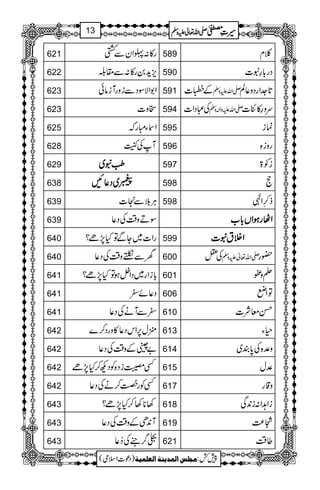 13
سیرتِ مصطفیٰ صلی اللہ تعالیٰ علیہ وسلم
کلام 589
دربارِ نبوت 590
تاجدارِ دو عالم صلی اللہ تعالیٰ علیہ وسلم کے خطبات 591
سرورِ کائنات صلی اللہ تعالیٰ علیہ وسلم کی عبادات 594
نماز 595
روزہ 596
زکوٰۃ 597
حج 598
ذکرِ الٰہی 598
اٹھارہواں باب
اخلاقِ نبوت 599
حضور صلی اللہ تعالیٰ علیہ وسلم کی عقل 600
حلم و عفو 601
تواضع 606
حسنِ معاشرت 610
حیاء 613
وعدہ کی پابندی 614
عدل 615
وقار 617
زاہدانہ زندگی 618
شجاعت 619
طاقت 621
رکانہ پہلوان سے کشتی 621
یزید بن رکانہ سے مقابلہ 622
ابوالاسود سے زور آزمائی 623
سخاوت 623
اسماء مبارکہ 625
آپ کی کنیت 628
طبِ نبوی 629
پیغمبری دعائیں 638
ہر بلا سے نجات 639
سوتے وقت کی دعا 639
رات میں جاگے تو کیا پڑھے؟ 640
گھر سے نکلتے وقت کی دعا 640
بازار میں داخل ہو تو کیا پڑھے؟ 641
دعائے سفر 641
سفر سے آنے کی دعا 641
منزل پر اس دعا کا ورد کرے 642
بے چینی کے وقت کی دعا 642
کسی مصیبت زدہ کو دیکھ کر کیا پڑھے 642
کسی کو رخصت کرنے کی دعا 642
کھانا کھا کر کیا پڑھے؟ 643
آندھی کے وقت کی دعا 643
بجلی گرجنے کی دعا 643
پیش کش: مجلس المدینة العلمیة (دعوتِ اسلامی)